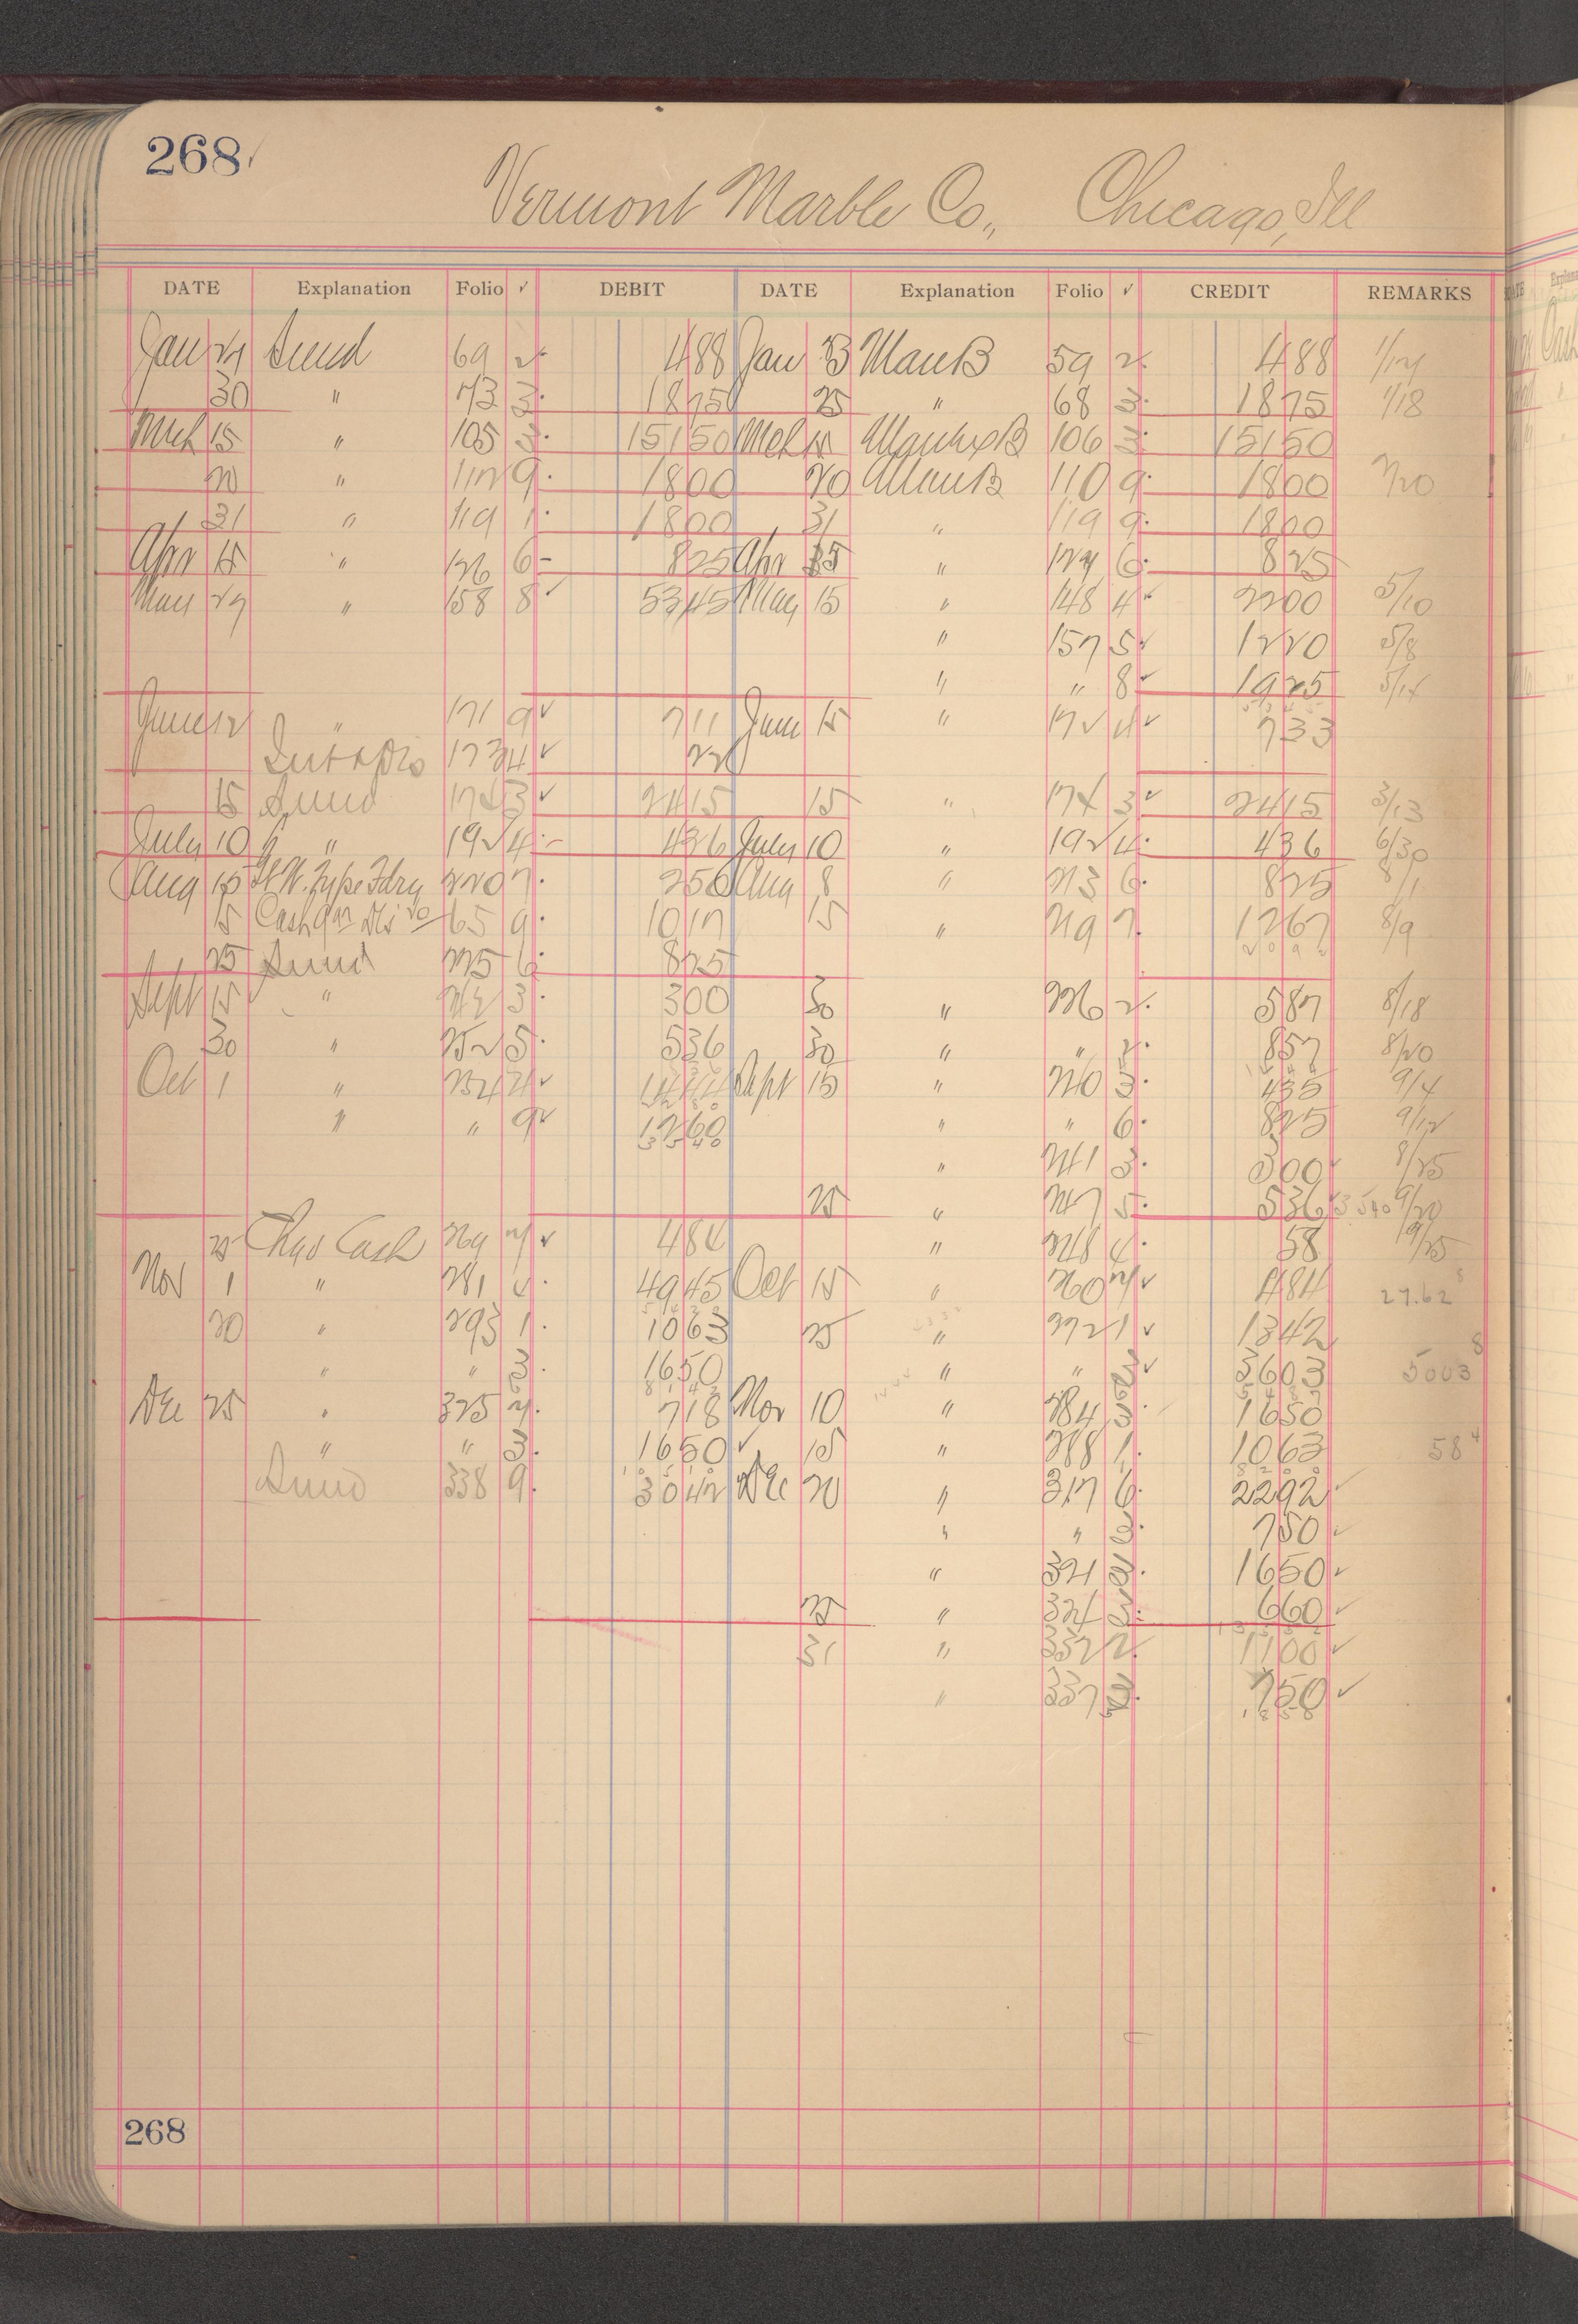 268
Vermont Marble Co., Chicago, Ill
DATE Explanation Folio ✓ DEBIT DATE Explanation Folio ✓ CREDIT REMARKS
Jan 27 Sund 69 2 488 Jan 13 ManB 59 2 488
30 " 73 3 1875 25 " 68 3 1875 1/18
Mch 15 " 105 3 15150 Mch 15 B 106 3 15150
20 " 112 9 1800 20 ManB 110 9 1800
31 " 119 1800 31 " 119 9 1800
Apr 15 " 126 6 825 Apr 15 " 124 6 825
May 29 " 158 8 5345 May 15 " 148 4 2200 5/10
" 157 5 1220 5/8
" " 8 1925 5/14
June 12 " 171 9 711 June 15 " 172 4 733
173 4 22
15 Sund 174 3 2415 15 " 174 3 2415 3/13
July 10 " 192 4 436 July 10 " 192 4 436 6/30
Aug 15 St N. Type Fdry 220 7 250 Aug 8 " 213 6 825 8/1
15 Cash 65 9 1017 15 " 219 7 1267 8/9
25 Sund 225 6 825
Sept 15 " 242 3 300 30 " 226 2 587 8/18
30 " 252 5 536 30 " " 2 857 8/20
Oct 1 " 254 2 1444 Sept 15 " 240 3 435 9/4
" " 9 1260 " " 6 825 9/12
" 241 3 300 8/25
25 " 247 5 536 3540 9/20
25 Chgo Cash 269 484 " 248 4 58 9/25
Nov 1 " 281 4 4945 Oct 15 " 260 484 27.62
20 " 293 1 1063 25 " 272 1 1342
" " 3 1650 " " 3603 5003
Dec 25 " 325 718 Nov 10 " 284 3 1650
" " 3 1650 15 " 288 1 1063 58
Sund 338 9 3042 Dec 20 " 317 6 2292
" " 750
" 321 1650
25 " 324 660
31 " 332 2 1100
" 337 750
268